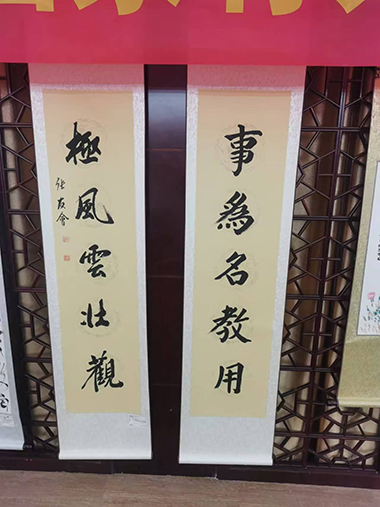 事為名教用
極風雲壯觀
張友會